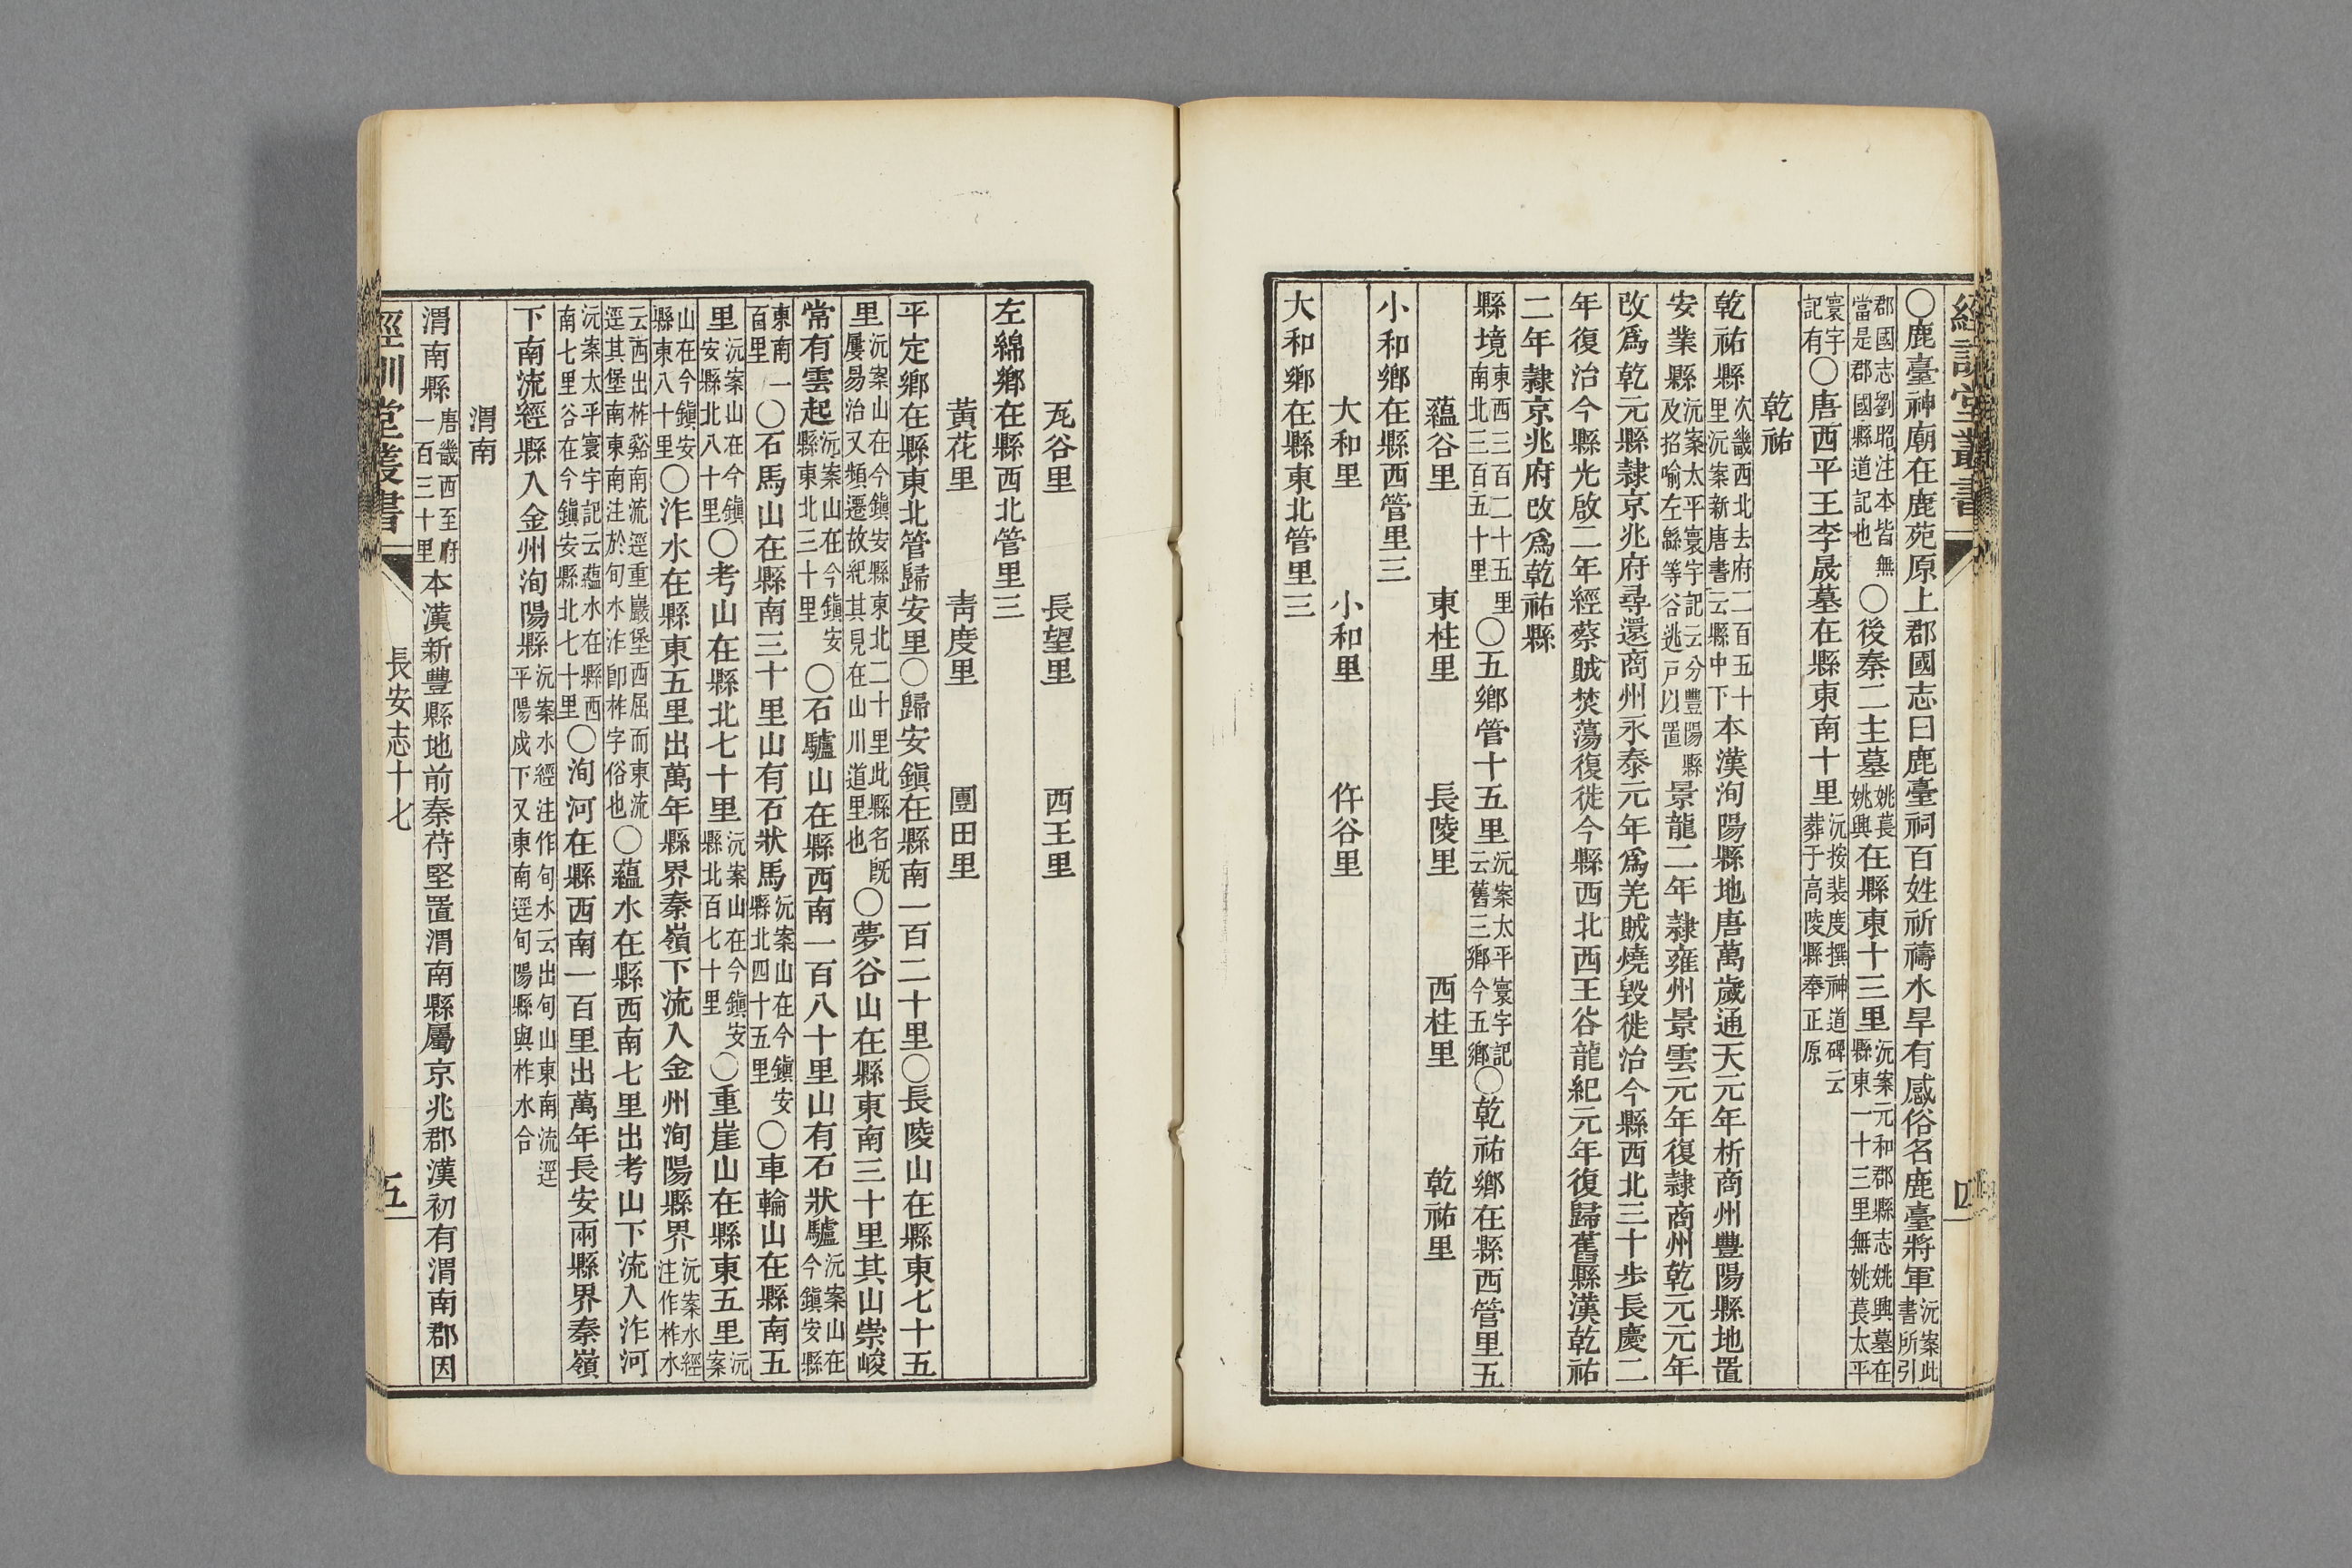 經訓堂叢書
四
〇鹿臺神廟在鹿苑原上郡國志曰鹿臺祠百姓祈禱水旱有感俗名鹿臺將軍沅案此書所引
郡國志劉昭注本皆無當是郡國縣道記也〇後秦二主墓姚萇姚興在縣東十三里沅案元和郡縣志姚興墓在縣東一十三里無姚萇太平
寰宇記有〇唐西平王李晟墓在縣東南十里沅按裴度撰神道碑云葬于高陵縣奉正原
乾祐
乾祐縣次畿西北去府二百五十里沅案新唐書云縣中下本漢洵陽縣地唐萬歲通天元年析商州豐陽縣地置
安業縣沅案太平寰宇記云分豐陽縣及招喻左緜等谷逃戸以置景龍二年隷雍州景雲元年復隷商州乾元元年
改爲乾元縣隷京兆府尋還商州永泰元年爲羌賊燒毀徙治今縣西北三十步長慶二
年復治今縣光啟二年經蔡賊焚蕩復徙今縣西北西王谷龍紀元年復歸舊縣漢乾祐
二年隷京兆府改爲乾祐縣
縣境東西三百二十五里南北三百五十里〇五鄉管十五里沅案太平寰宇記云舊三鄉今五鄉〇乾祐鄉在縣西管里五
蘊谷里　東柱里　長陵里　西柱里　乾祐里
小和鄉在縣西管里三
大和里　小和里　仵谷里
大和鄉在縣東北管里三
㡳谷里　長望里　西王里
左綿鄉在縣西北管里三
黃花里　靑度里　團田里
平定鄉在縣東北管歸安里〇歸安鎭在縣南一百二十里〇長陵山在縣東七十五
里沅案山在今鎭安縣東北二十里此縣名旣屢易治又頻遷故紀其見在山川道里也〇夢谷山在縣東南三十里其山崇峻
常有雲起沅案山在今鎭安縣東北三十里〇石驢山在縣西南一百八十里山有石狀驢沅案山在今鎭安縣
東南一百里〇石馬山在縣南三十里山有石狀馬沅案山在今鎭安縣北四十五里〇車輪山在縣南五
里沅案山在今鎭安縣北八十里〇考山在縣北七十里沅案山在今鎭安縣北百七十里〇重崖山在縣東五里沅案
山在今鎭安縣東八十里〇泎水在縣東五里出萬年縣界秦嶺下流入金州洵陽縣界沅案水經注作柞水
云西出柞谿南流逕重巖堡西屈而東流逕其堡南東南注於旬水泎卽柞字俗也〇蘊水在縣西南七里出考山下流入泎河
沅案太平寰宇記云蘊水在縣西南七里谷在今鎭安縣北七十里〇洵河在縣西南一百里出萬年長安兩縣界秦嶺
下南流經縣入金州洵陽縣沅案水經注作旬水云出旬山東南流逕平陽戍下又東南逕旬陽縣與柞水合
渭南
渭南縣唐畿西至府一百三十里本漢新豐縣地前秦苻堅置渭南縣屬京兆郡漢初有渭南郡因
經訓堂叢書
長安志十七
五